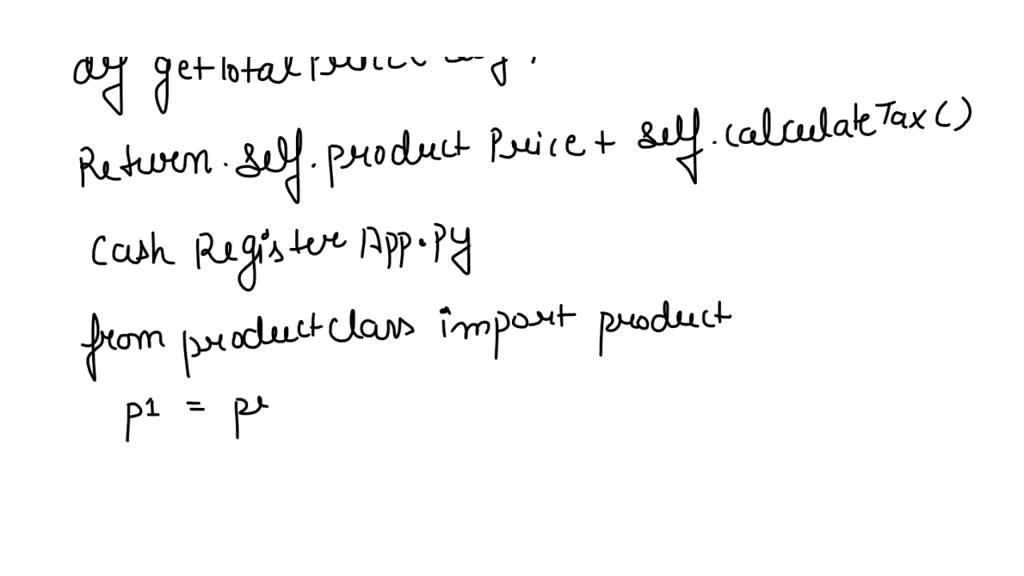 getTotalPrice
Return.self.product Price + self.calculateTax()
Cash Register App.py
from productclass import product
p1 = pr